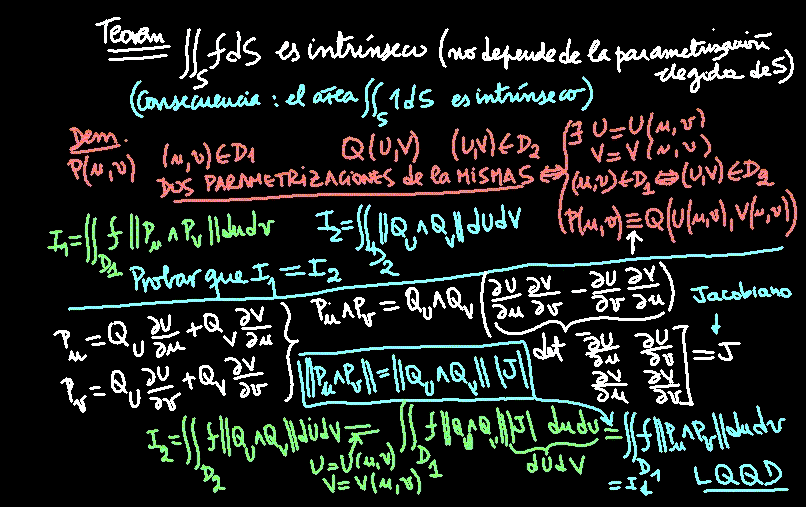 Teorem ∬_S f dS es intrínseco (no depende de la parametrización elegida de S)
(Consecuencia: el área ∬_S 1 dS es intrínseco)
Dem.
P(u,v) (u,v)∈D₁ Q(U,V) (U,V)∈D₂
DOS PARAMETRIZACIONES de la MISMA S ⇔ {∃ U=U(u,v)
V=V(u,v)
(u,v)∈D₁⇔(U,V)∈D₂
P(u,v)≡Q(U(u,v),V(u,v))
I₁=∬_D₁ f‖P_u∧P_v‖dudv I₂=∬_D₂ f‖Q_U∧Q_V‖dUdV
Probar que I₁=I₂
P_u=Q_U ∂U/∂u+Q_V ∂V/∂u
P_v=Q_U ∂U/∂v+Q_V ∂V/∂v
P_u∧P_v=Q_U∧Q_V(∂U/∂u ∂V/∂v − ∂U/∂v ∂V/∂u)
Jacobiano
det [∂U/∂u ∂U/∂v
∂V/∂u ∂V/∂v] = J
‖P_u∧P_v‖=‖Q_U∧Q_V‖|J|
I₂=∬_D₂ f‖Q_U∧Q_V‖dUdV = ∬_D₁ f‖Q_U∧Q_V‖|J| dudv = ∬_D₁ f‖P_u∧P_v‖dudv
U=U(u,v)
V=V(u,v)
dUdV
=I₁ LQQD